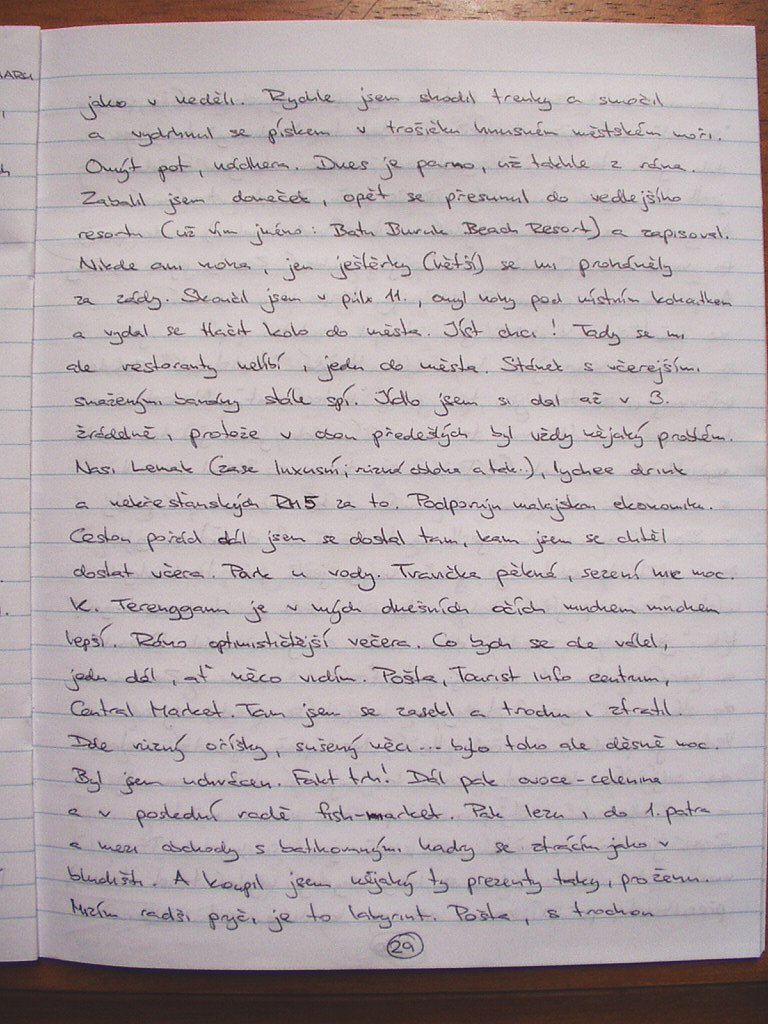 jako v neděli. Rychle jsem shodil trenky a smočil
a vydrhnul se pískem v trošičku hnusném městském moři.
Omýt pot, nádhera. Dnes je parno, už takhle z rána.
Zabalil jsem domeček, opět se přesunul do vedlejšího
resortu (už vím jméno: Batu Buruk Beach Resort) a zapisoval.
Nikde ani noha, jen ještěrky (větší) se mi proháněly
za zády. Skončil jsem v půlx 11., omyl nohy pod místním kohoutkem
a vydal se tlačit kolo do města. Jíst chci! Tady se mi
ale restoranty nelíbí, jedu do města. Stánek s včerejšími
smaženými banány stále spí. Jídlo jsem si dal až v 3.
žrádelně, protože v obou předešlých byl vždy nějaký problém.
Nasi Lemak (zase luxusní; různá obloha a tak..), lychee drink
a nekřesťanských RM5 za to. Podporuju malajskou ekonomiku.
Cestou pořád dál jsem se dostal tam, kam jsem se chtěl
dostat včera. Park u vody. Travička pěkná, sezení nic moc.
K. Terengganu je v mých dnešních očích mnohem mnohem
lepší. Ráno optimističtější večera. Co bych se ale válel,
jedu dál, ať něco vidím. Pošta, Tourist info centrum,
Central Market. Tam jsem se zasekl a trochu i ztratil.
Dole různý oříšky, sušený věci... bylo toho ale děsně moc.
Byl jsem uchvácen. Fakt trh! Dál pak ovoce-celenina
a v poslední radě fish-market. Pak lezu i do 1. patra
a mezi obchody s batikovanými hadry se ztrácím jako v
bludišti. A koupil jsem nějaký ty prezenty taky, pro ženu.
Mizím radši pryč, je to labyrint. Pošta, s trochou
29